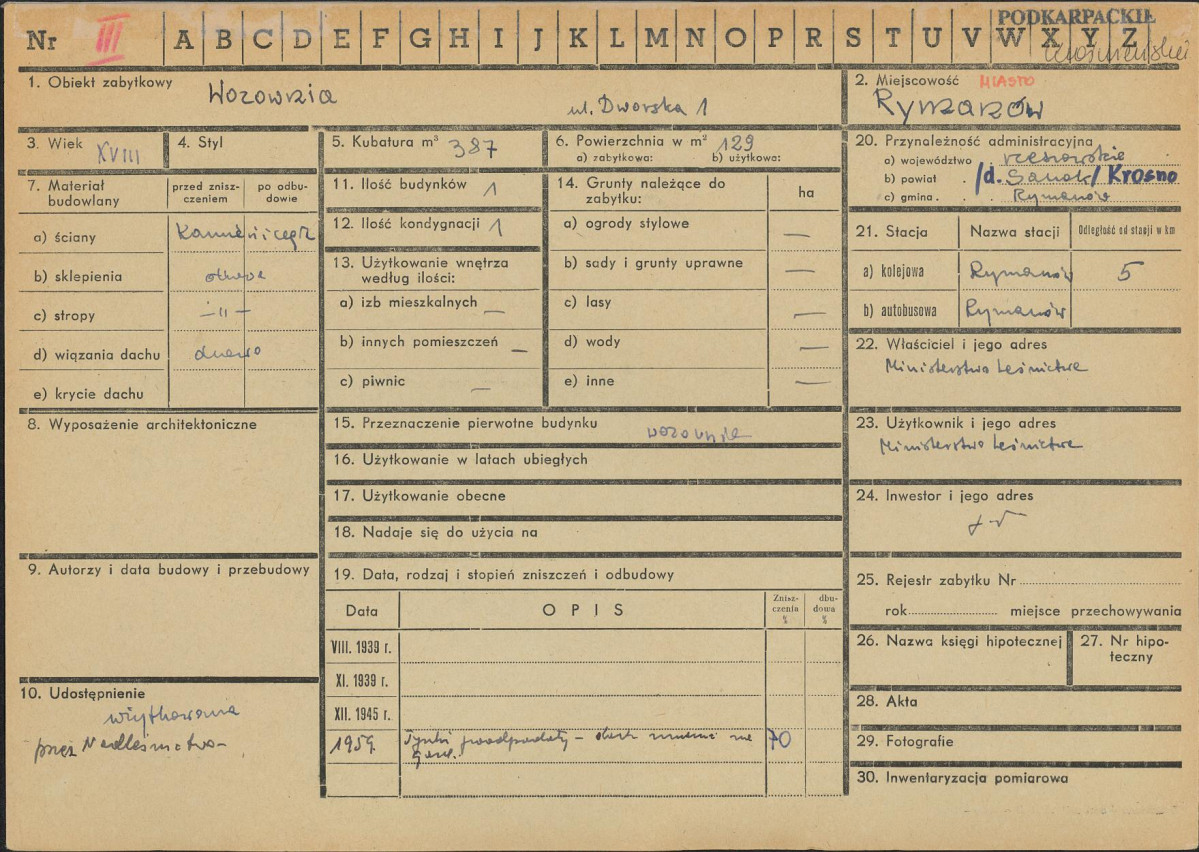 Nr III A B C D E F G H I J K L M N O P R S T U V W X Y Z
PODKARPACKIE
1. Obiekt zabytkowy
Wozownia
ul. Dworska 1
2. Miejscowość MIASTO
Rymanów
3. Wiek XVIII
4. Styl
5. Kubatura m³ 387
6. Powierzchnia w m² 129
a) zabytkowa: b) użytkowa:
20. Przynależność administracyjna
a) województwo rzeszowskie
b) powiat /d. Sanok/ Krosno
c) gmina Rymanów
7. Materiał budowlany
przed zniszczeniem
po odbudowie
a) ściany
b) sklepienia
c) stropy — 11 —
d) wiązania dachu
e) krycie dachu
11. Ilość budynków 1
12. Ilość kondygnacji 1
13. Użytkowanie wnętrza według ilości:
a) izb mieszkalnych —
b) innych pomieszczeń —
c) piwnic —
14. Grunty należące do zabytku:
ha
a) ogrody stylowe —
b) sady i grunty uprawne —
c) lasy —
d) wody —
e) inne —
21. Stacja
Nazwa stacji
Odległość od stacji w km
a) kolejowa Rymanów 5
b) autobusowa Rymanów
22. Właściciel i jego adres
Ministerstwo Leśnictwa
8. Wyposażenie architektoniczne
15. Przeznaczenie pierwotne budynku wozownia
16. Użytkowanie w latach ubiegłych
17. Użytkowanie obecne
18. Nadaje się do użycia na
23. Użytkownik i jego adres
Ministerstwo Leśnictwa
24. Inwestor i jego adres
9. Autorzy i data budowy i przebudowy
19. Data, rodzaj i stopień zniszczeń i odbudowy
Data
OPIS
Zniszczenia %
dbudowa %
VIII. 1939 r.
XI. 1939 r.
XII. 1945 r.
1959. 70
25. Rejestr zabytku Nr
rok miejsce przechowywania
26. Nazwa księgi hipotecznej
27. Nr hipoteczny
10. Udostępnienie
użytkowana
przez Nadleśnictwo
28. Akta
29. Fotografie
30. Inwentaryzacja pomiarowa